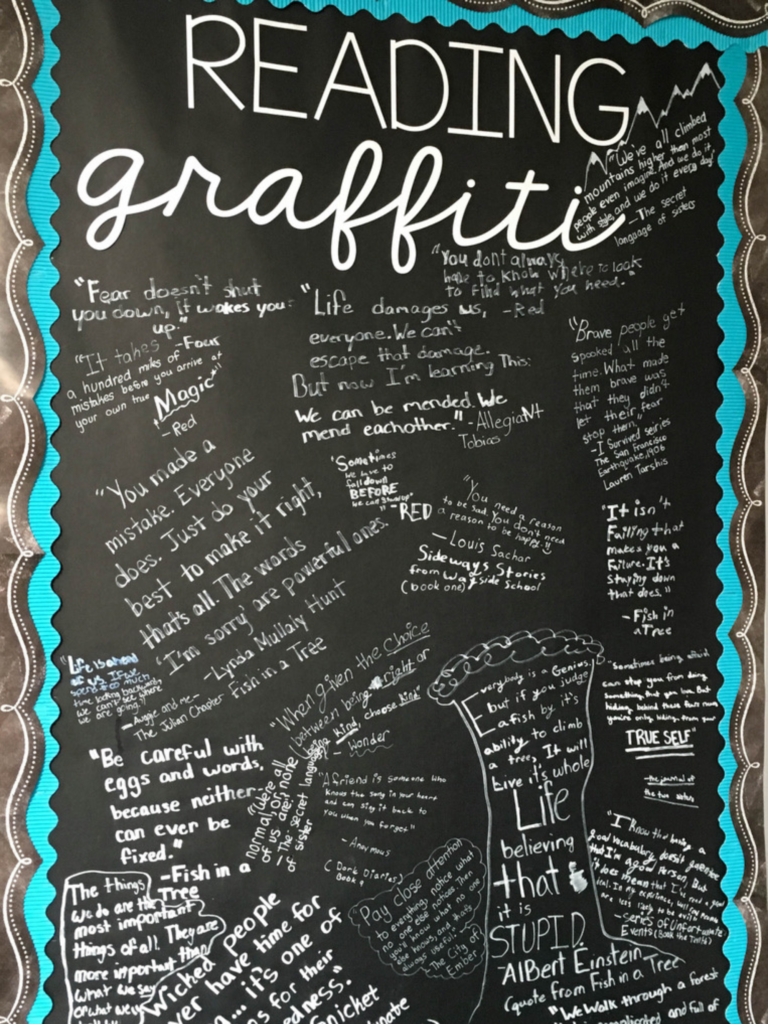 READING
graffiti
"We've all climbed
mountains higher than most
people even imagine. And we do it
with style, and we do it every day."
-The secret
language of sisters
"You dont always
have to know where to look
to find what you need."
-Red
"Fear doesn't shut
you down, it wakes you
up."
-Four
"Life damages us,
everyone. We can't
escape that damage.
But now I'm learning This:
We can be mended. We
mend eachother."
-AllegiaNt
Tobias
"It takes
a hundred miles of
mistakes before you arrive at
your own true
Magic"
-Red
"Brave people get
spooked all the
time. What made
them brave was
that they didn't
let their fear
stop them."
-I Survived seiries
The San Francisco
Earthquake, 1906
Lauren Tarshis
"You made a
mistake. Everyone
does. Just do your
best to make it right,
that's all. The words
'I'm sorry' are powerful ones.
-Lynda Mullaly Hunt
Fish in a Tree
"Sometimes
we have to
fall down
BEFORE
we can
-RED
"You need a reason
to be sad. You don't need
a reason to be happy."
-Louis Sachar
Sideways Stories
from Wayside School
(book one)
"It isn't
Failing that
makes you a
Failure. It's
staying down
that does."
-Fish in
a Tree
"Life is ahead
of us. If we
spend too much
time looking backward
we can't see where
we are going."
-Auggie and me-
The Julian Chapter
"When given the choice
between being right or
being kind, choose kind"
-Wonder
"We're all
normal, or none
of us are."
The secret language
of sister
"Be careful with
eggs and words,
because neither
can ever be
fixed."
-Fish in a
Tree
"A friend is someone who
knows the song in your heart
and can sing it back to
you when you forget."
-Anonymous
(Dork Diaries)
Book 9
Everybody is a Genius.
but if you judge
a fish by it's
ability to climb
a tree, It will
live it's whole
Life
believing
that
it is
STUPID.
-AlBert Einstein
(quote from Fish in a Tree
"Sometimes being afraid
can stop you from doing
something that you love. But
hiding behind these fears means
you're only hiding from your
TRUE SELF"
"I know that having a
good vocabulary doesn't guarantee
that I'm a good person, But
it does mean that I've read a good
deal.
-Series of Unfortunate
Events (Book the Tenth)
"Pay close attention
to everything, notice what
no one else notices. then
you'll know what no one
else knows, and that's
always useful."
-The City of
Ember
The things
we do are the
most important
things of all. They are
more important than
what we say
or what we
Wicked people
ver have time for
... it's one of
ns for their
edness."
nicket
unate
"We Walk through a forest
complicated and full of